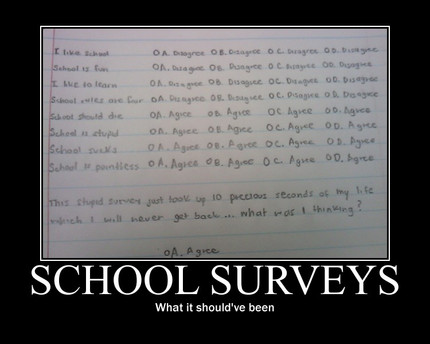 I like school OA. Disagree OB. Disagree OC. Disagree OD. Disagree
School is fun OA. Disagree OB. Disagree OC. Disagree OD. Disagree
I like to learn OA. Disagree OB. Disagree OC. Disagree OD. Disagree
School rules are fair OA. Disagree OB. Disagree OC. Disagree OD. Disagree
School should die OA. Agree OB. Agree OC. Agree OD. Agree
School is stupid OA. Agree OB. Agree OC. Agree OD. Agree
School sucks OA. Agree OB. Agree OC. Agree OD. Agree
School is pointless OA. Agree OB. Agree OC. Agree OD. Agree
This stupid survey just took up 10 precious seconds of my life
which I will never get back... what was I thinking?
OA. Agree
SCHOOL SURVEYS
What it should've been